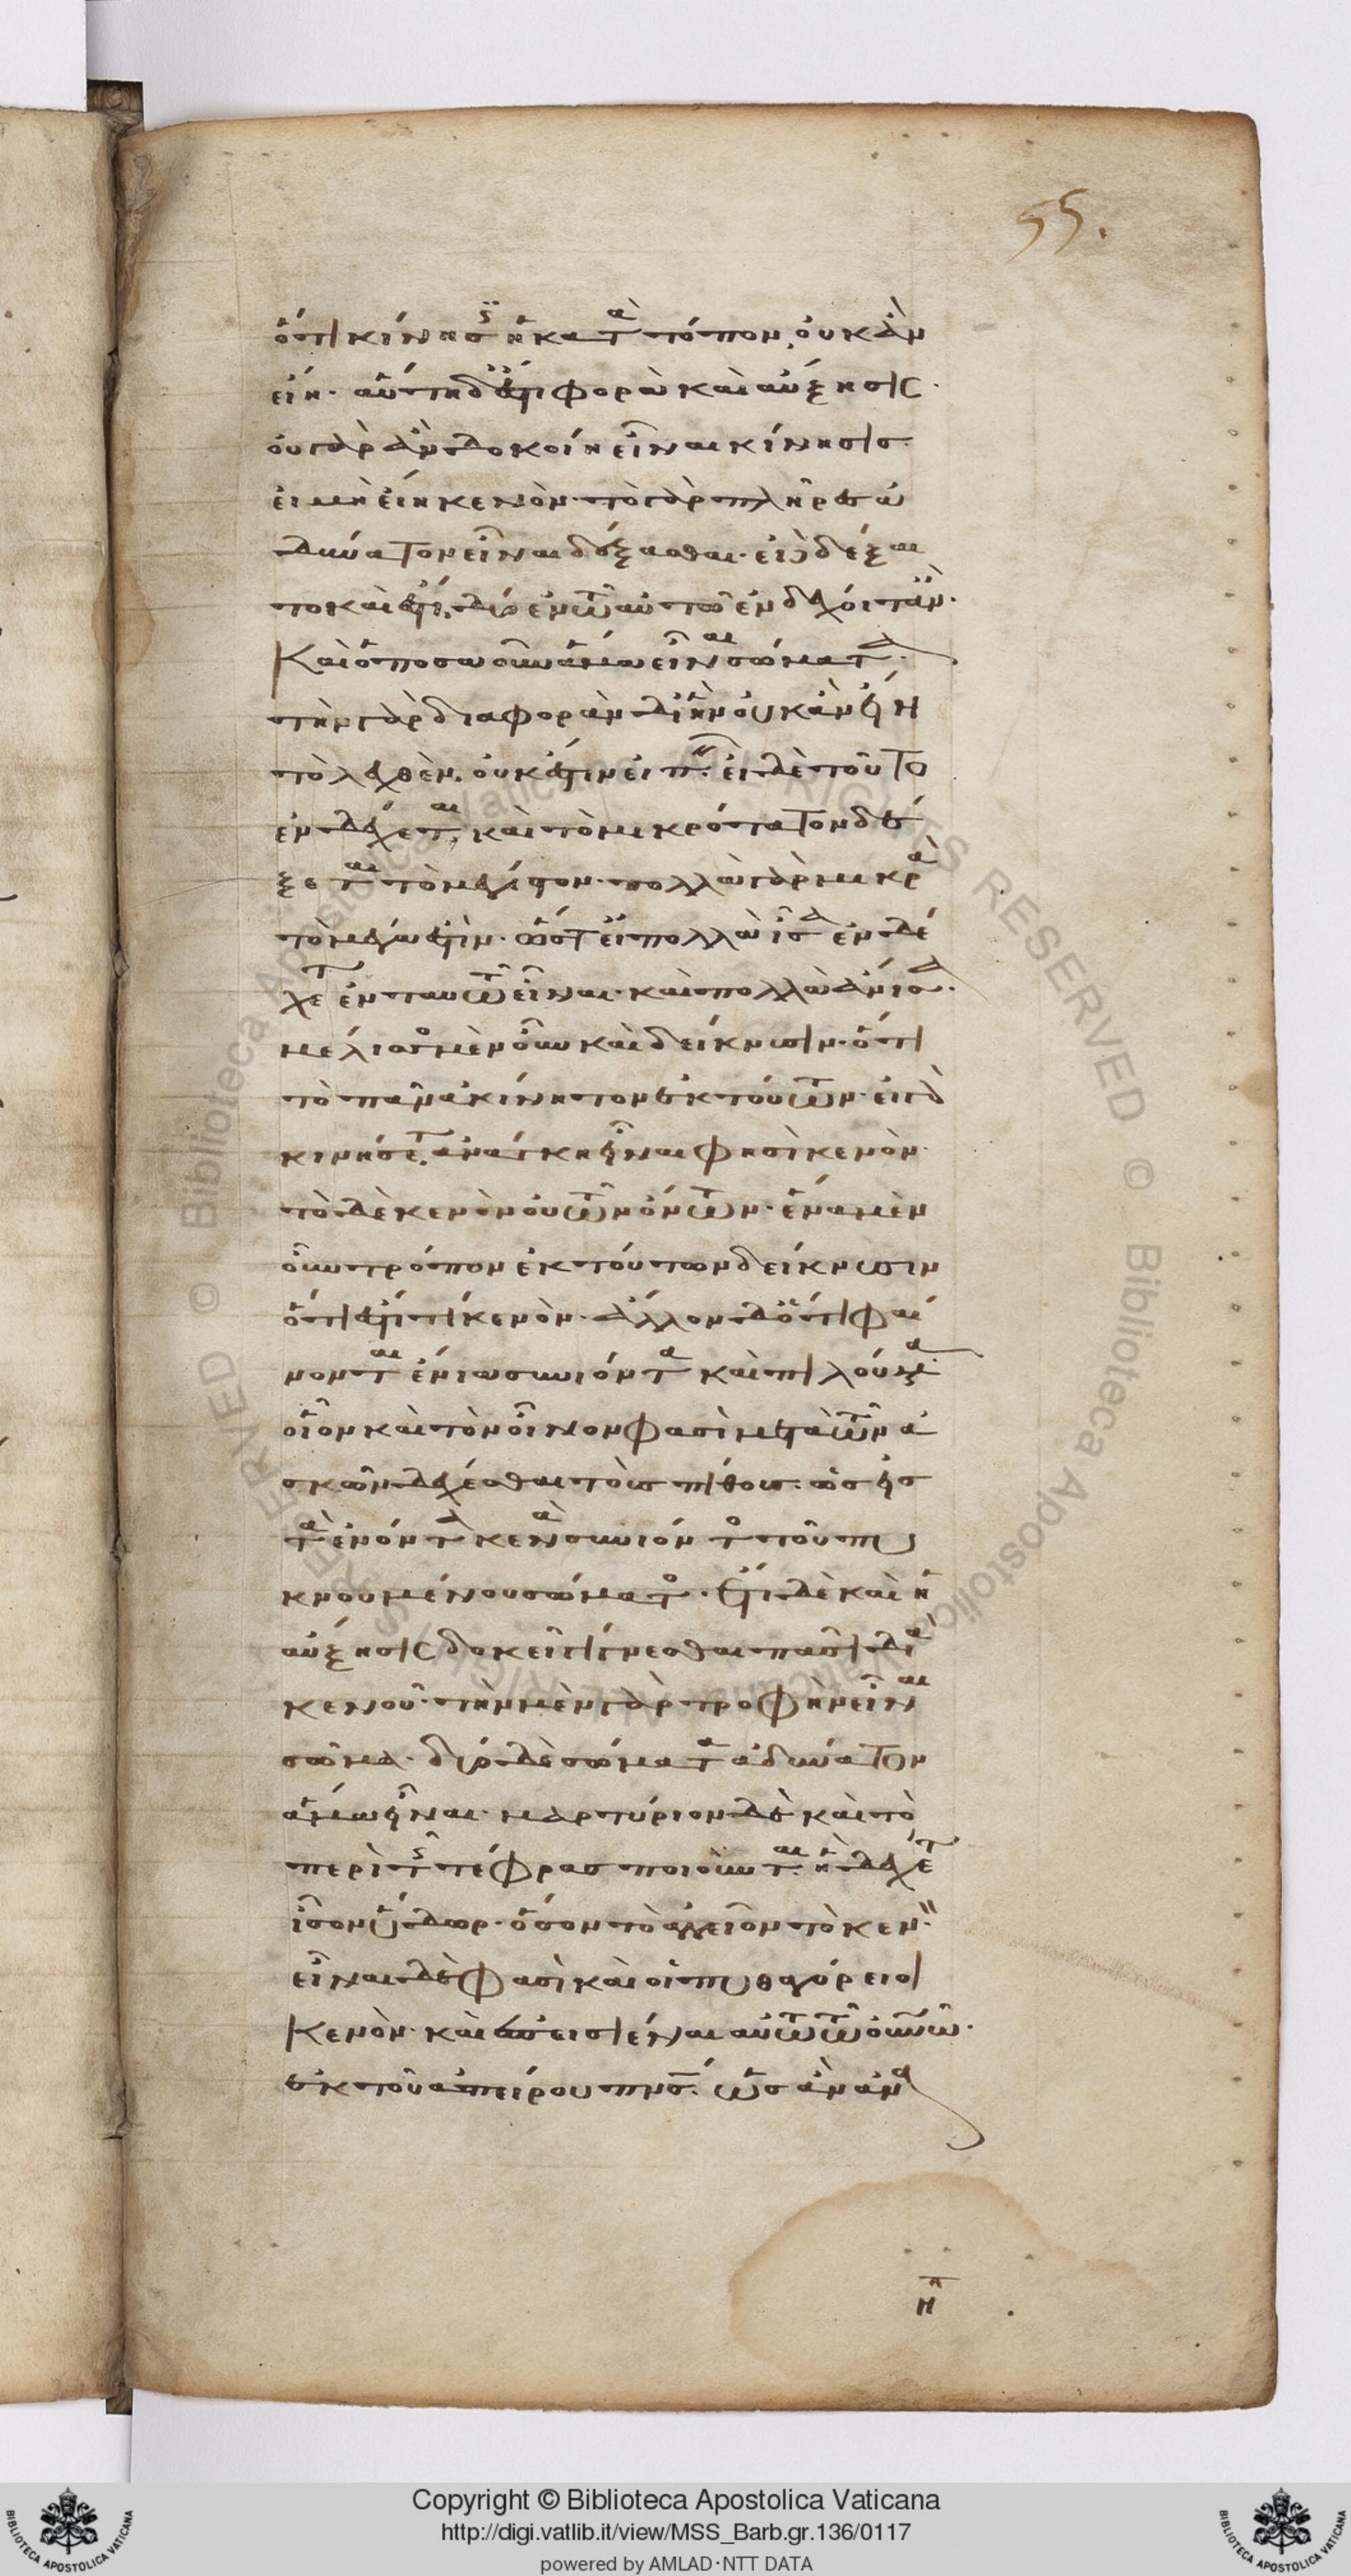 55.
ὅτι κίνησις ἡ κατὰ τόπον, οὐκ ἂν
εἴη. αὕτη δ' ἐστὶ φορὰ καὶ αὔξησις.
οὐ γὰρ ἂν δοκοίη εἶναι κίνησις
εἰ μὴ εἴη κενόν. τὸ γὰρ πλῆρες ἀ
δύνατον εἶναι δέξασθαι. εἰ δὲ δέξαι
το καὶ ἔσται δύο ἐν τῶ αὐτῶ ἐνδέχοιτ' ἂν.
καὶ ὁποσαοῦν ἅμα εἶναι σώματα.
τὴν γὰρ διαφορὰν δι' ἣν οὐκ ἂν εἴη
τὸ λεχθὲν, οὐκ ἔστιν εἰπεῖν. εἰ δὲ τοῦτο
ἐνδέχεται, καὶ τὸ μικρότατον δέ
ξεται τὸ μέγιστον. πολλὰ γὰρ μικρὰ
τὸ μέγα ἐστίν. ὥστ' εἰ πολλὰ ἶσα ἐνδέ
χεται ἐν ταυτῶ εἶναι. καὶ πολλὰ ἄνισα.
μέλισσος μὲν οὖν καὶ δείκνυσιν. ὅτι
τὸ πᾶν ἀκίνητον ἐκ τούτων. εἰ γὰρ
κινήσεται, ἀνάγκη εἶναι φησὶ κενόν.
τὸ δὲ κενὸν οὐ τῶν ὄντων. ἕνα μὲν
οὖν τρόπον ἐκ τούτων δείκνυσιν
ὅτι ἐστί τι κενόν. ἄλλον δ' ὅτι φαί
νονται ἔνια συνιόντα καὶ πιλούμενα.
οἷον καὶ τὸν οἶνον φασὶ μετὰ τῶν ἀ
σκῶν δέχεσθαι τοὺς πίθους. ὡς εἰς
τὰ ἐνόντα κενὰ συνιόντος τοῦ πυ
κνουμένου σώματος. ἔτι δὲ καὶ ἡ
αὔξησις δοκεῖ γίγνεσθαι πᾶσι διὰ
κενοῦ. τὴν μὲν γὰρ τροφὴν εἶναι
σῶμα. δύο δὲ σώματα ἀδύνατον
ἅμα εἶναι. μαρτύριον δὲ καὶ τὸ
περὶ τῆς τέφρας ποιοῦνται. ἣ δέχεται
ἶσον ὕδωρ. ὅσον τὸ ἀγγεῖον τὸ κενόν.
εἶναι δὲ φασὶ καὶ οἱ πυθαγόρειοι
κενόν. καὶ ἐπεισιέναι αὐτῶ τῶ οὐνῶ.
ἐκ τοῦ ἀπείρου πνς. ὡς ἂν ἀνα
η